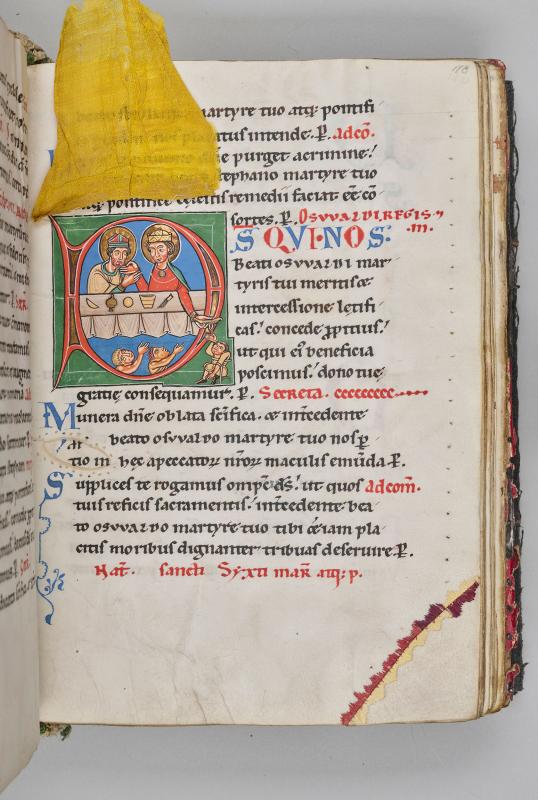 118
martyre tuo atq; pontifi
intende. P. adcō.
purget acrimine!
stephano martyre tuo
atq; pontifice remedii faciat eē cō
sortes. P. OSVVALDI REGIS 7
DS QVI NOS .m.
Beati osvvaldi mar
tyris tui meritis &
intercessione lętifi
cas! concede ꝓpitius!
ut qui ei beneficia
poscimus! dono tuę
gratię consequamur. P. Secreta.
Munera dn̄e oblata sc̄ifica. & int̄cedente
beato osvvaldo martyre tuo nos ꝑ
hęc apeccatoꝝ nr̄oꝝ maculis emūda. P.
Supplices te rogamus omp̄s d̄s! ut quos adcom̄.
tuis reficis sacramentis! int̄cedente bea
to osvvaldo martyre tuo tibi &iam pla
citis moribus dignanter tribuas deseruire. P.
Nat̄. sancti Syxti mar̄ atq; p.